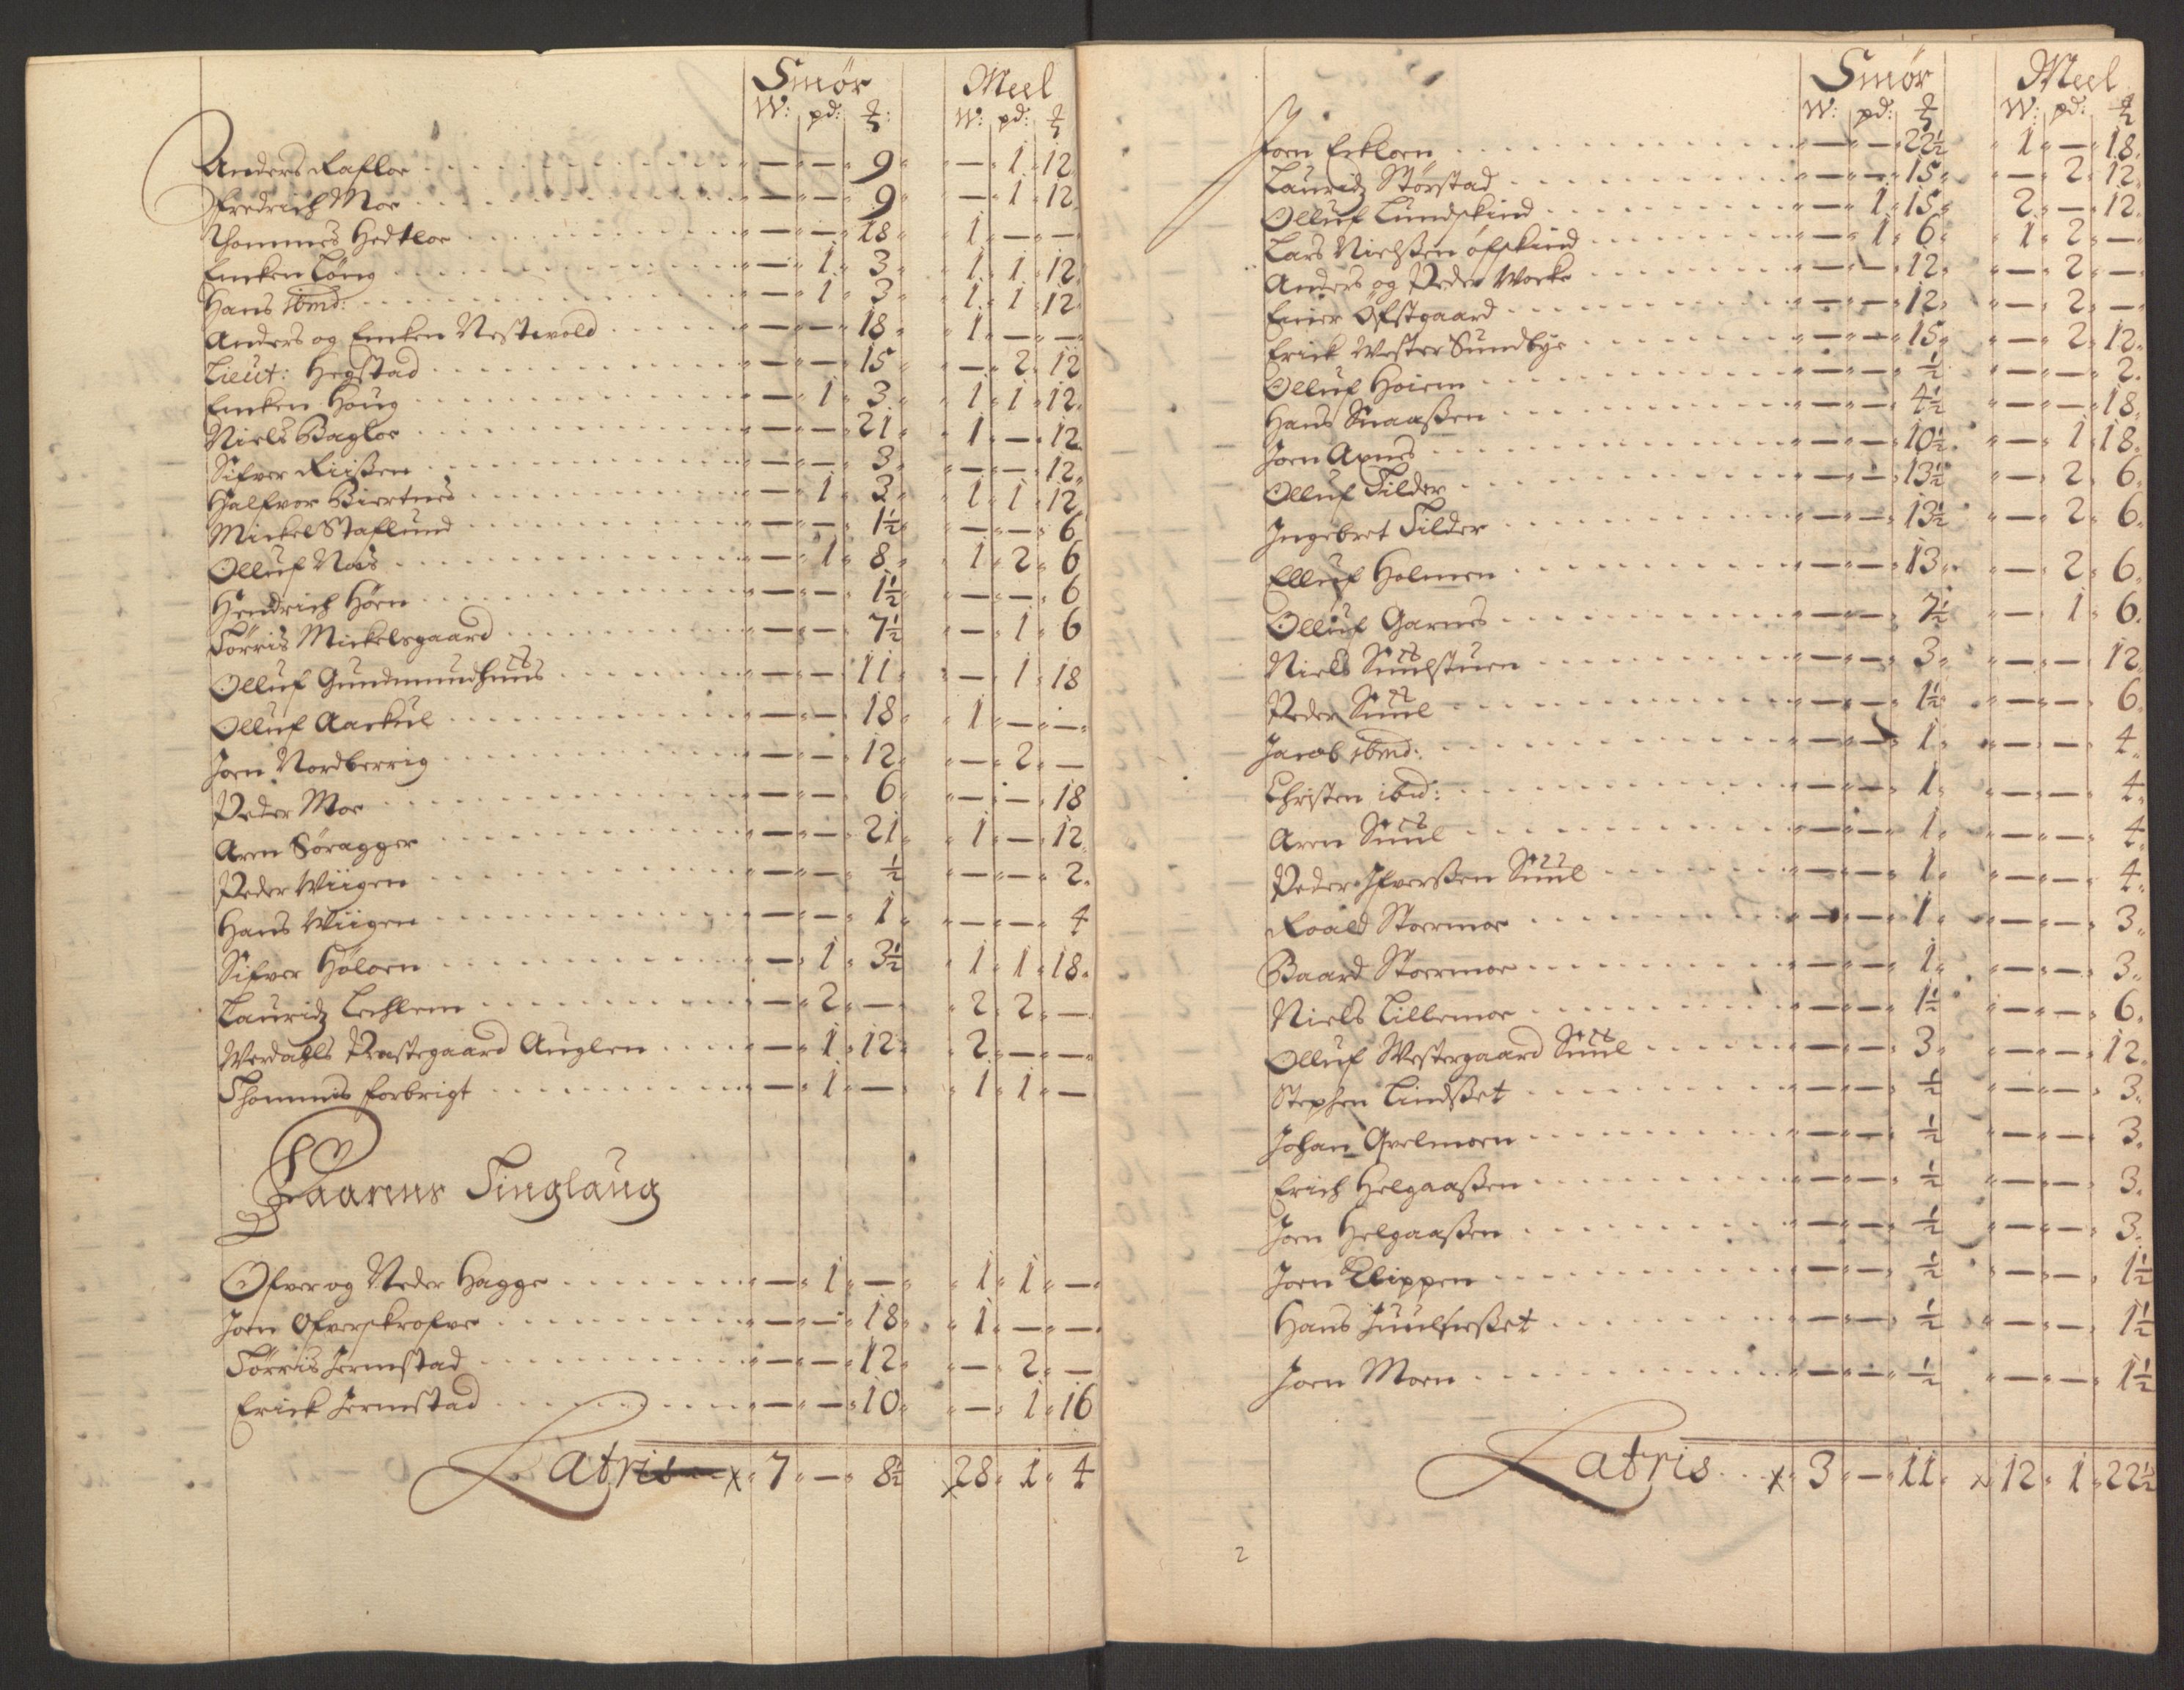 Smør Meel
W: pd: ℔: W: pd: ℔
Anders Rafloe — — 9 — 1 12
Fredrich Moe — — 9 — 1 12
Thommes Hedtloe — — 18 1 — —
Encken Löng — 1 3 1 1 12
Hans ibmd: — 1 3 1 1 12
Anders og Encken Nestvold — — 18 1 — —
Lieut: Hegstad — — 15 — 2 12
Encken Houg — 1 3 1 1 12
Niels Bagloe — — 21 1 — 12
Sifver Riißen — — 3 — — 12
Halfvor Biertnes — 1 3 1 1 12
Mickel Staflund — — 1½ — — 6
Olluf Næs — 1 8 1 2 6
Hendrich Höen — — 1½ — — 6
Törris Mickelsgaard — — 7½ — 1 6
Olluf Gundmundhuus — — 11 — 1 18
Olluf Aackul — — 18 1 — —
Joen Nordberrig — — 12 — 2 —
Peder Moe — — 6 — — 18
Aren Söragger — — 21 1 — 12
Peder Wiigen — — ½ — — 2
Hans Wiigen — — 1 — — 4
Sifver Höloen — 1 3½ 1 1 18
Lauridz Lechlem — 2 — 2 2 —
Werdahls Prestegaard Auglen — 1 12 2 — —
Thommis Forbrigt — 1 — 1 1 —
Skaarens Tinglaug
Ofver og Neder Hagge — 1 — 1 1 —
Joen Ofverskrofve — — 18 1 — —
Törris Jermstad — — 12 — 2 —
Erick Jermstad — — 10 — 1 16
Latris 7 — 8½ 28 1 4
Smør Meel
W: pd: ℔ W: pd: ℔
Joen Eckloen — — 22½ 1 — 18
Lauridz Störstad — — 15 — 2 12
Olluf Lundskind — 1 15 2 — 12
Lars Nielßen öfskind — 1 6 1 2 —
Anders og Peder Wocke — — 12 — 2 —
Einer Öfstgaard — — 12 — 2 —
Erick Wester Sundbye — — 15 — 2 12
Olluf Hoiem — — ½ — — 2
Hans Snaaßen — — 4½ — — 18
Joen Axnes — — 10½ — 1 18
Olluf Tilder — — 13½ — 2 6
Ingebret Tilder — — 13½ — 2 6
Elluf Holmen — — 13 — 2 6
Olluf Garnes — — 7½ — 1 6
Niels Suulstuen — — 3 — — 12
Peder Suul — — 1½ — — 6
Jacob ibmd: — — 1 — — 4
Christen ibid: — — 1 — — 4
Aren Suul — — 1 — — 4
Peder Ifverßen Suul — — 1 — — 4
Roald Stoermoe — — 1 — — 3
Baard Stoermoe — — 1 — — 3
Niels Lillemoe — — 1½ — — 6
Olluf Westergaard Suul — — 3 — — 12
Stephen Lindßet — — ½ — — 3
Johan Qvelmoen — — ½ — — 3
Erich Helgaaßen — — ½ — — 3
Joen Helgaaßen — — ½ — — 3
Joen Klippen — — ½ — — 1½
Hans — — ½ — — 1½
Joen Moen — — ½ — — 1½
Latris 3 — 11 12 1 22½
2